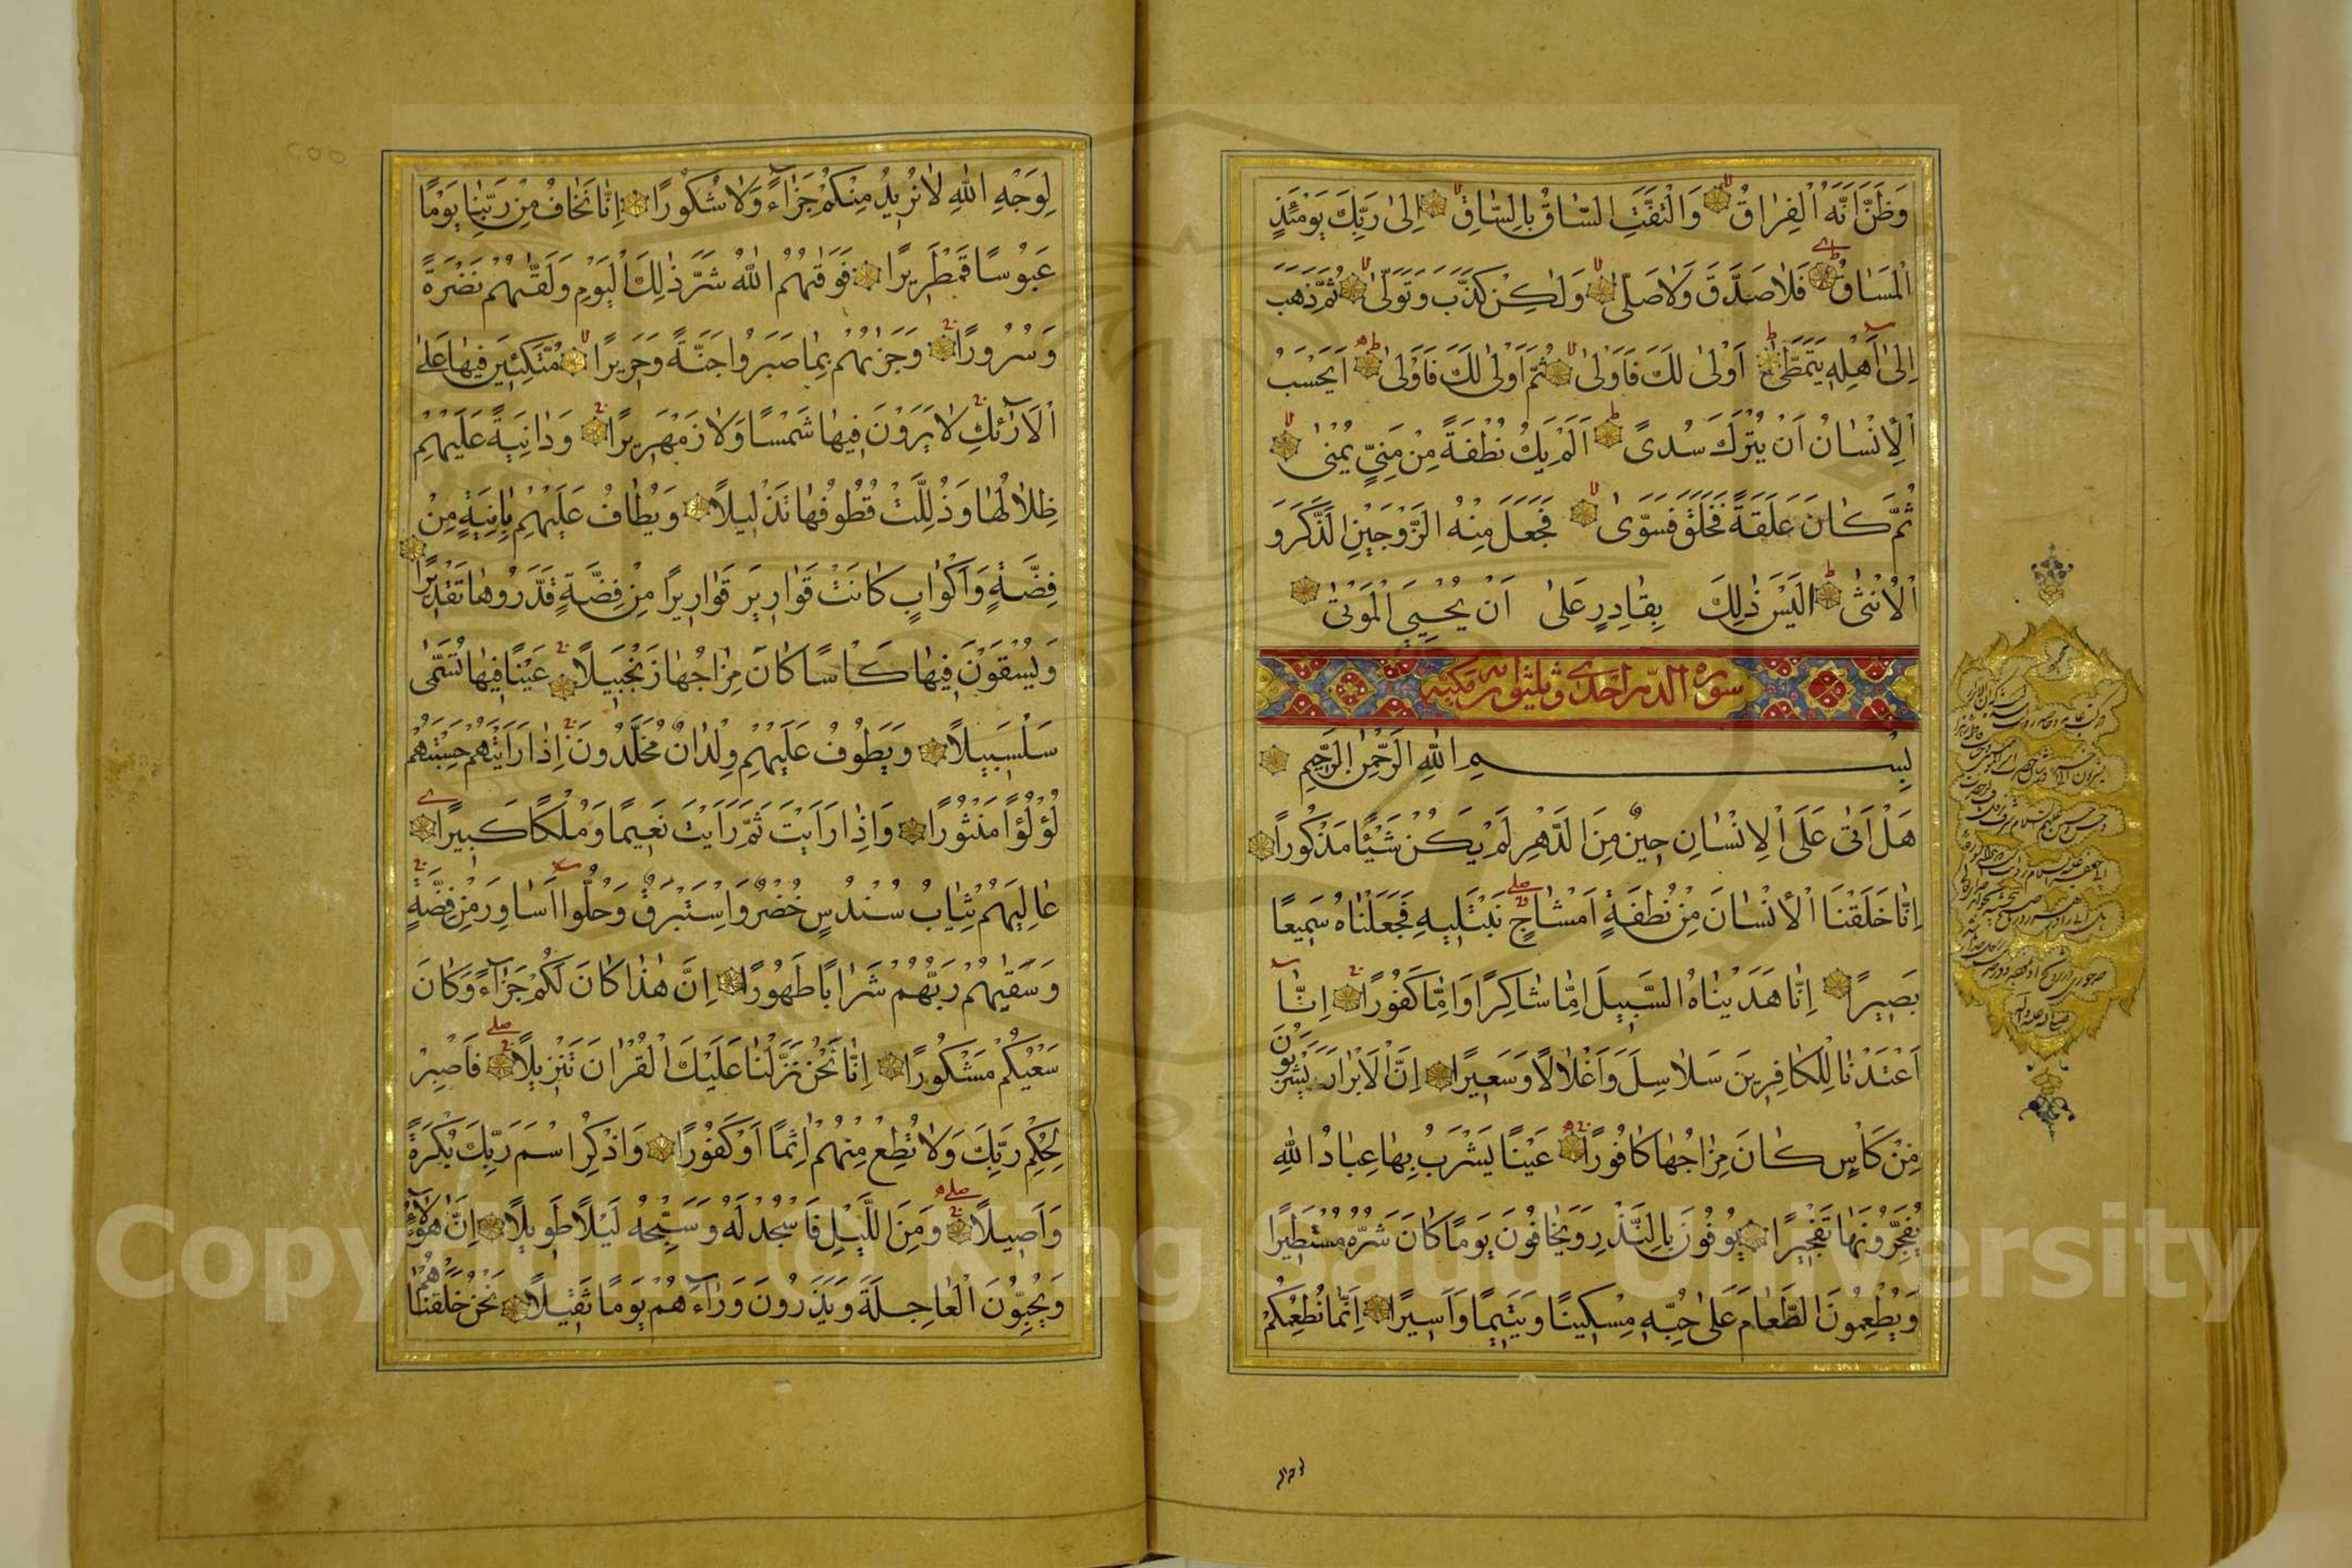 وَظَنَّ اَنَّهُ الْفِرٰاقُ وَالْتَفَّتِ السّٰاقُ بِالسّٰاقِ اِلىٰ رَبِّكَ يَوْمَئِذٍ
الْمَسٰاقُ فَلٰا صَدَّقَ وَلٰا صَلّىٰ وَلٰكِنْ كَذَّبَ وَتَوَلّىٰ ثُمَّ ذَهَبَ
اِلىٰ اَهْلِهِ يَتَمَطّىٰ اَوْلىٰ لَكَ فَاَوْلىٰ ثُمَّ اَوْلىٰ لَكَ فَاَوْلىٰ اَيَحْسَبُ
الْاِنْسٰانُ اَنْ يُتْرَكَ سُدىً اَلَمْ يَكُ نُطْفَةً مِنْ مَنِيٍّ يُمْنىٰ
ثُمَّ كٰانَ عَلَقَةً فَخَلَقَ فَسَوّىٰ فَجَعَلَ مِنْهُ الزَّوْجَيْنِ الذَّكَرَ وَ
الْاُنْثىٰ اَلَيْسَ ذٰلِكَ بِقٰادِرٍ عَلىٰ اَنْ يُحْيِيَ الْمَوْتىٰ
سورة الدهر احدى وثلثون آية مكية
بِسْمِ اللهِ الرَّحْمٰنِ الرَّحِيمِ
هَلْ اَتىٰ عَلَى الْاِنْسٰانِ حِينٌ مِنَ الدَّهْرِ لَمْ يَكُنْ شَيْئًا مَذْكُورًا
اِنّٰا خَلَقْنَا الْاِنْسٰانَ مِنْ نُطْفَةٍ اَمْشٰاجٍ نَبْتَلِيهِ فَجَعَلْنٰاهُ سَمِيعًا
بَصِيرًا اِنّٰا هَدَيْنٰاهُ السَّبِيلَ اِمّٰا شٰاكِرًا وَاِمّٰا كَفُورًا اِنّٰا
اَعْتَدْنٰا لِلْكٰافِرِينَ سَلٰاسِلَ وَاَغْلٰالًا وَسَعِيرًا اِنَّ الْاَبْرٰارَ يَشْرَبُونَ
مِنْ كَاْسٍ كٰانَ مِزٰاجُهٰا كٰافُورًا عَيْنًا يَشْرَبُ بِهٰا عِبٰادُ اللهِ
يُفَجِّرُونَهٰا تَفْجِيرًا يُوفُونَ بِالنَّذْرِ وَيَخٰافُونَ يَوْمًا كٰانَ شَرُّهُ مُسْتَطِيرًا
وَيُطْعِمُونَ الطَّعٰامَ عَلىٰ حُبِّهِ مِسْكِينًا وَيَتِيمًا وَاَسِيرًا اِنَّمٰا نُطْعِمُكُمْ
لِوَجْهِ اللهِ لٰا نُرِيدُ مِنْكُمْ جَزٰاءً وَلٰا شُكُورًا اِنّٰا نَخٰافُ مِنْ رَبِّنٰا يَوْمًا
عَبُوسًا قَمْطَرِيرًا فَوَقٰيهُمُ اللهُ شَرَّ ذٰلِكَ الْيَوْمِ وَلَقّٰيهُمْ نَضْرَةً
وَسُرُورًا وَجَزٰيهُمْ بِمٰا صَبَرُوا جَنَّةً وَحَرِيرًا مُتَّكِئِينَ فِيهٰا عَلَى
الْاَرٰائِكِ لٰا يَرَوْنَ فِيهٰا شَمْسًا وَلٰا زَمْهَرِيرًا وَدٰانِيَةً عَلَيْهِمْ
ظِلٰالُهٰا وَذُلِّلَتْ قُطُوفُهٰا تَذْلِيلًا وَيُطٰافُ عَلَيْهِمْ بِاٰنِيَةٍ مِنْ
فِضَّةٍ وَاَكْوٰابٍ كٰانَتْ قَوٰارِيرَ قَوٰارِيرًا مِنْ فِضَّةٍ قَدَّرُوهٰا تَقْدِيرًا
وَيُسْقَوْنَ فِيهٰا كَاْسًا كٰانَ مِزٰاجُهٰا زَنْجَبِيلًا عَيْنًا فِيهٰا تُسَمّىٰ
سَلْسَبِيلًا وَيَطُوفُ عَلَيْهِمْ وِلْدٰانٌ مُخَلَّدُونَ اِذٰا رَاَيْتَهُمْ حَسِبْتَهُمْ
لُؤْلُؤًا مَنْثُورًا وَاِذٰا رَاَيْتَ ثَمَّ رَاَيْتَ نَعِيمًا وَمُلْكًا كَبِيرًا
عٰالِيَهُمْ ثِيٰابُ سُنْدُسٍ خُضْرٌ وَاِسْتَبْرَقٌ وَحُلُّوا اَسٰاوِرَ مِنْ فِضَّةٍ
وَسَقٰيهُمْ رَبُّهُمْ شَرٰابًا طَهُورًا اِنَّ هٰذٰا كٰانَ لَكُمْ جَزٰاءً وَكٰانَ
سَعْيُكُمْ مَشْكُورًا اِنّٰا نَحْنُ نَزَّلْنٰا عَلَيْكَ الْقُرْاٰنَ تَنْزِيلًا فَاصْبِرْ
لِحُكْمِ رَبِّكَ وَلٰا تُطِعْ مِنْهُمْ اٰثِمًا اَوْ كَفُورًا وَاذْكُرِ اسْمَ رَبِّكَ بُكْرَةً
وَاَصِيلًا وَمِنَ اللَّيْلِ فَاسْجُدْ لَهُ وَسَبِّحْهُ لَيْلًا طَوِيلًا اِنَّ هٰؤُلٰاءِ
يُحِبُّونَ الْعٰاجِلَةَ وَيَذَرُونَ وَرٰاءَهُمْ يَوْمًا ثَقِيلًا نَحْنُ خَلَقْنٰاهُمْ
Copyright © King Saud University